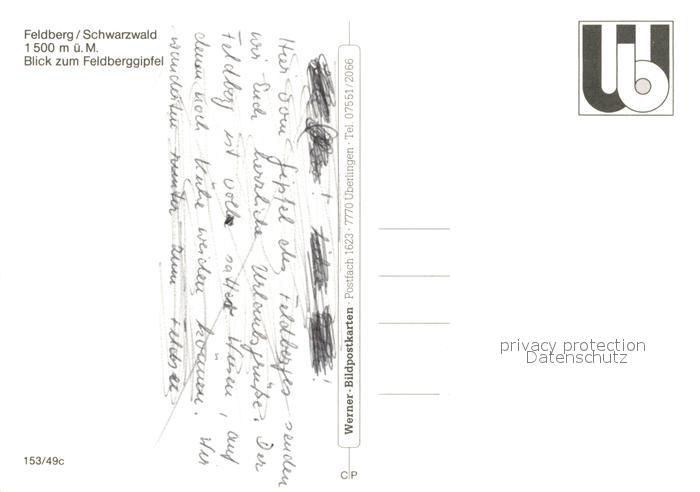 Feldberg / Schwarzwald
1500 m ü. M.
Blick zum Feldberggipfel
Hier vom Gipfel des Feldberges senden
wir Euch herrliche Urlaubsgrüße. Der
Feldberg ist voller satter Wiesen, auf
denen noch Kühe weiden können. Wir
wanderten runter zum Feldsee
Werner-Bildpostkarten · Postfach 1623 · 7770 Überlingen · Tel. 07551/2066
153/49c
C P
privacy protection
Datenschutz